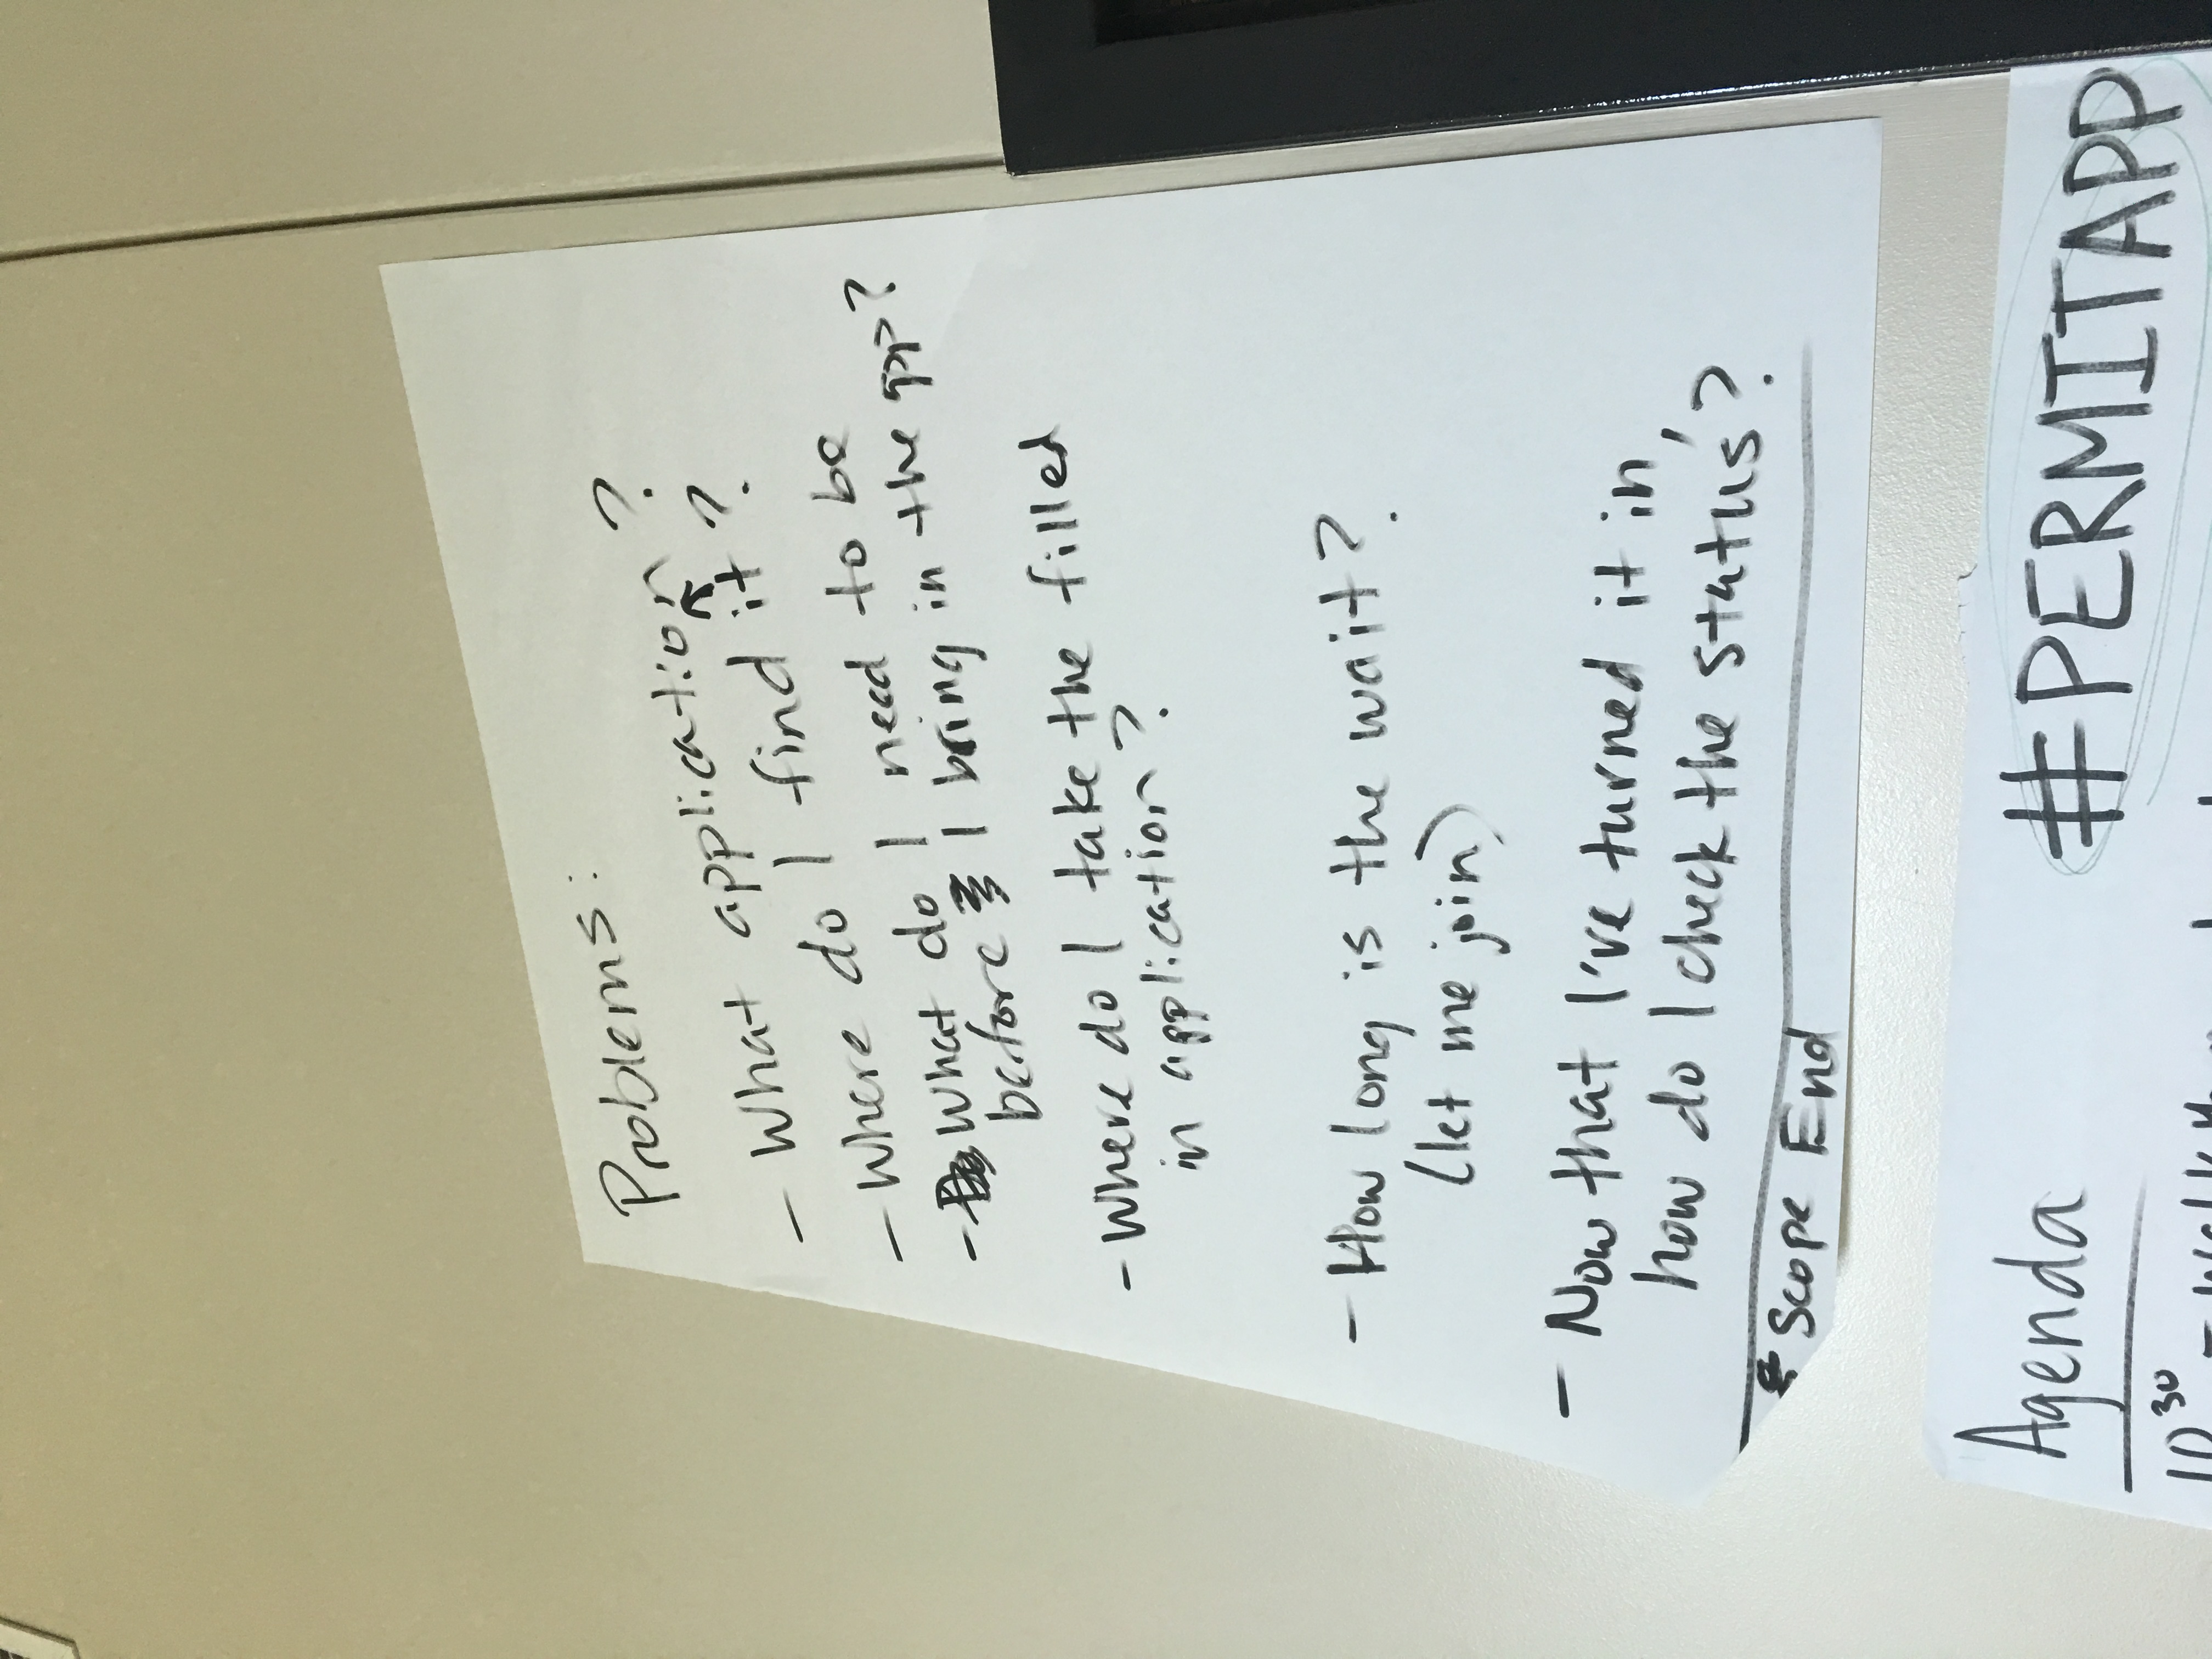 Problems:
- What application?
- Where do I find it?
- What do I need to be
before I bring in the app?
- Where do I take the filled
in application?
- How long is the wait?
(let me join)
- Now that I've turned it in,
how do I check the status?
Scope End
Agenda
#PERMITAPP
10 30 - Walk